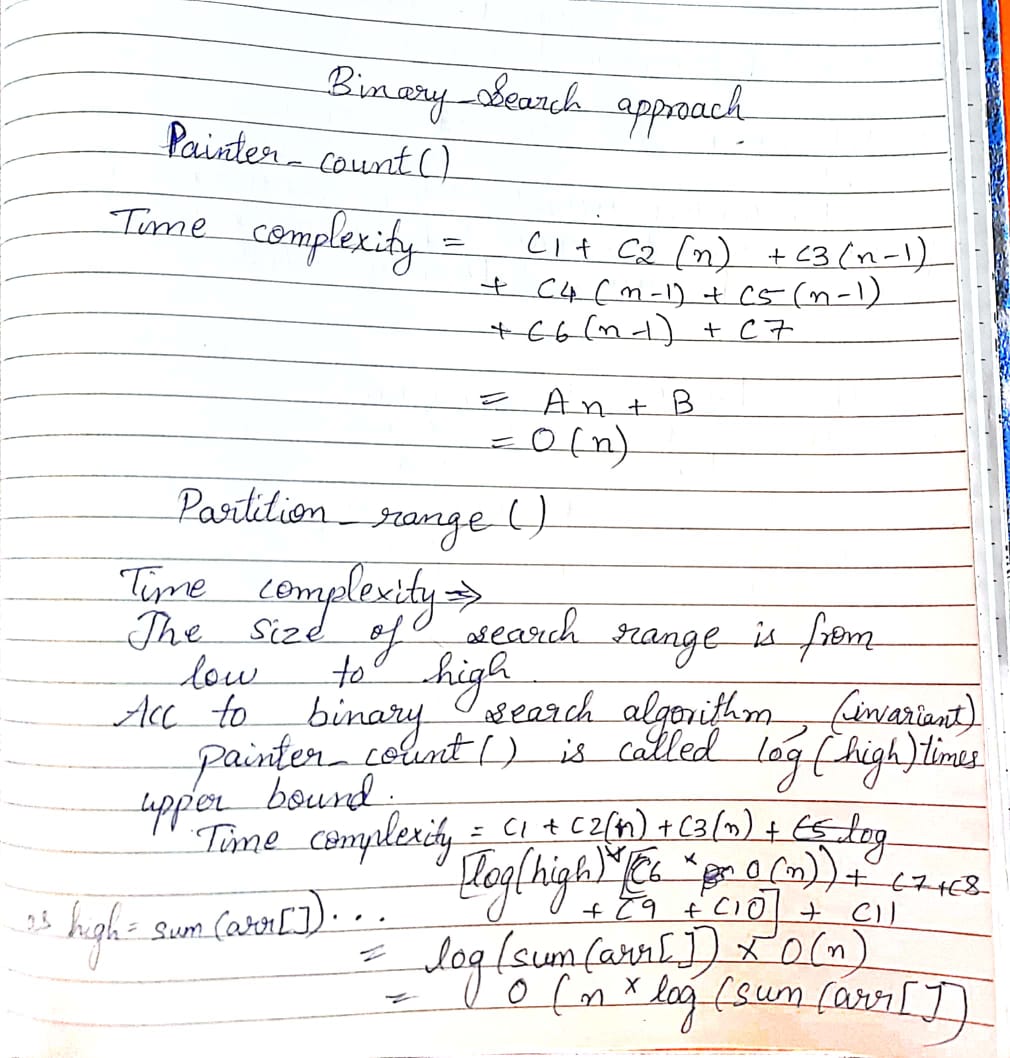 Binary Search approach
Painter_count()
Time complexity = C1 + C2 (n) + C3 (n-1)
+ C4 (n-1) + C5 (n-1)
+ C6 (n-1) + C7
= An + B
= O(n)
Partition_range()
Time complexity ⇒
The size of search range is from
low to high
Acc to binary search algorithm, (invariant)
painter_count() is called log(high) times
upper bound.
Time complexity = C1 + C2(n) + C3(n) + C5 log
[log(high) * [C6 * O(n)) + C7+C8
+ C9 + C10] + C11
as high = sum(arr[])...
= log(sum(arr[]) × O(n)
= O(n * log(sum(arr[])